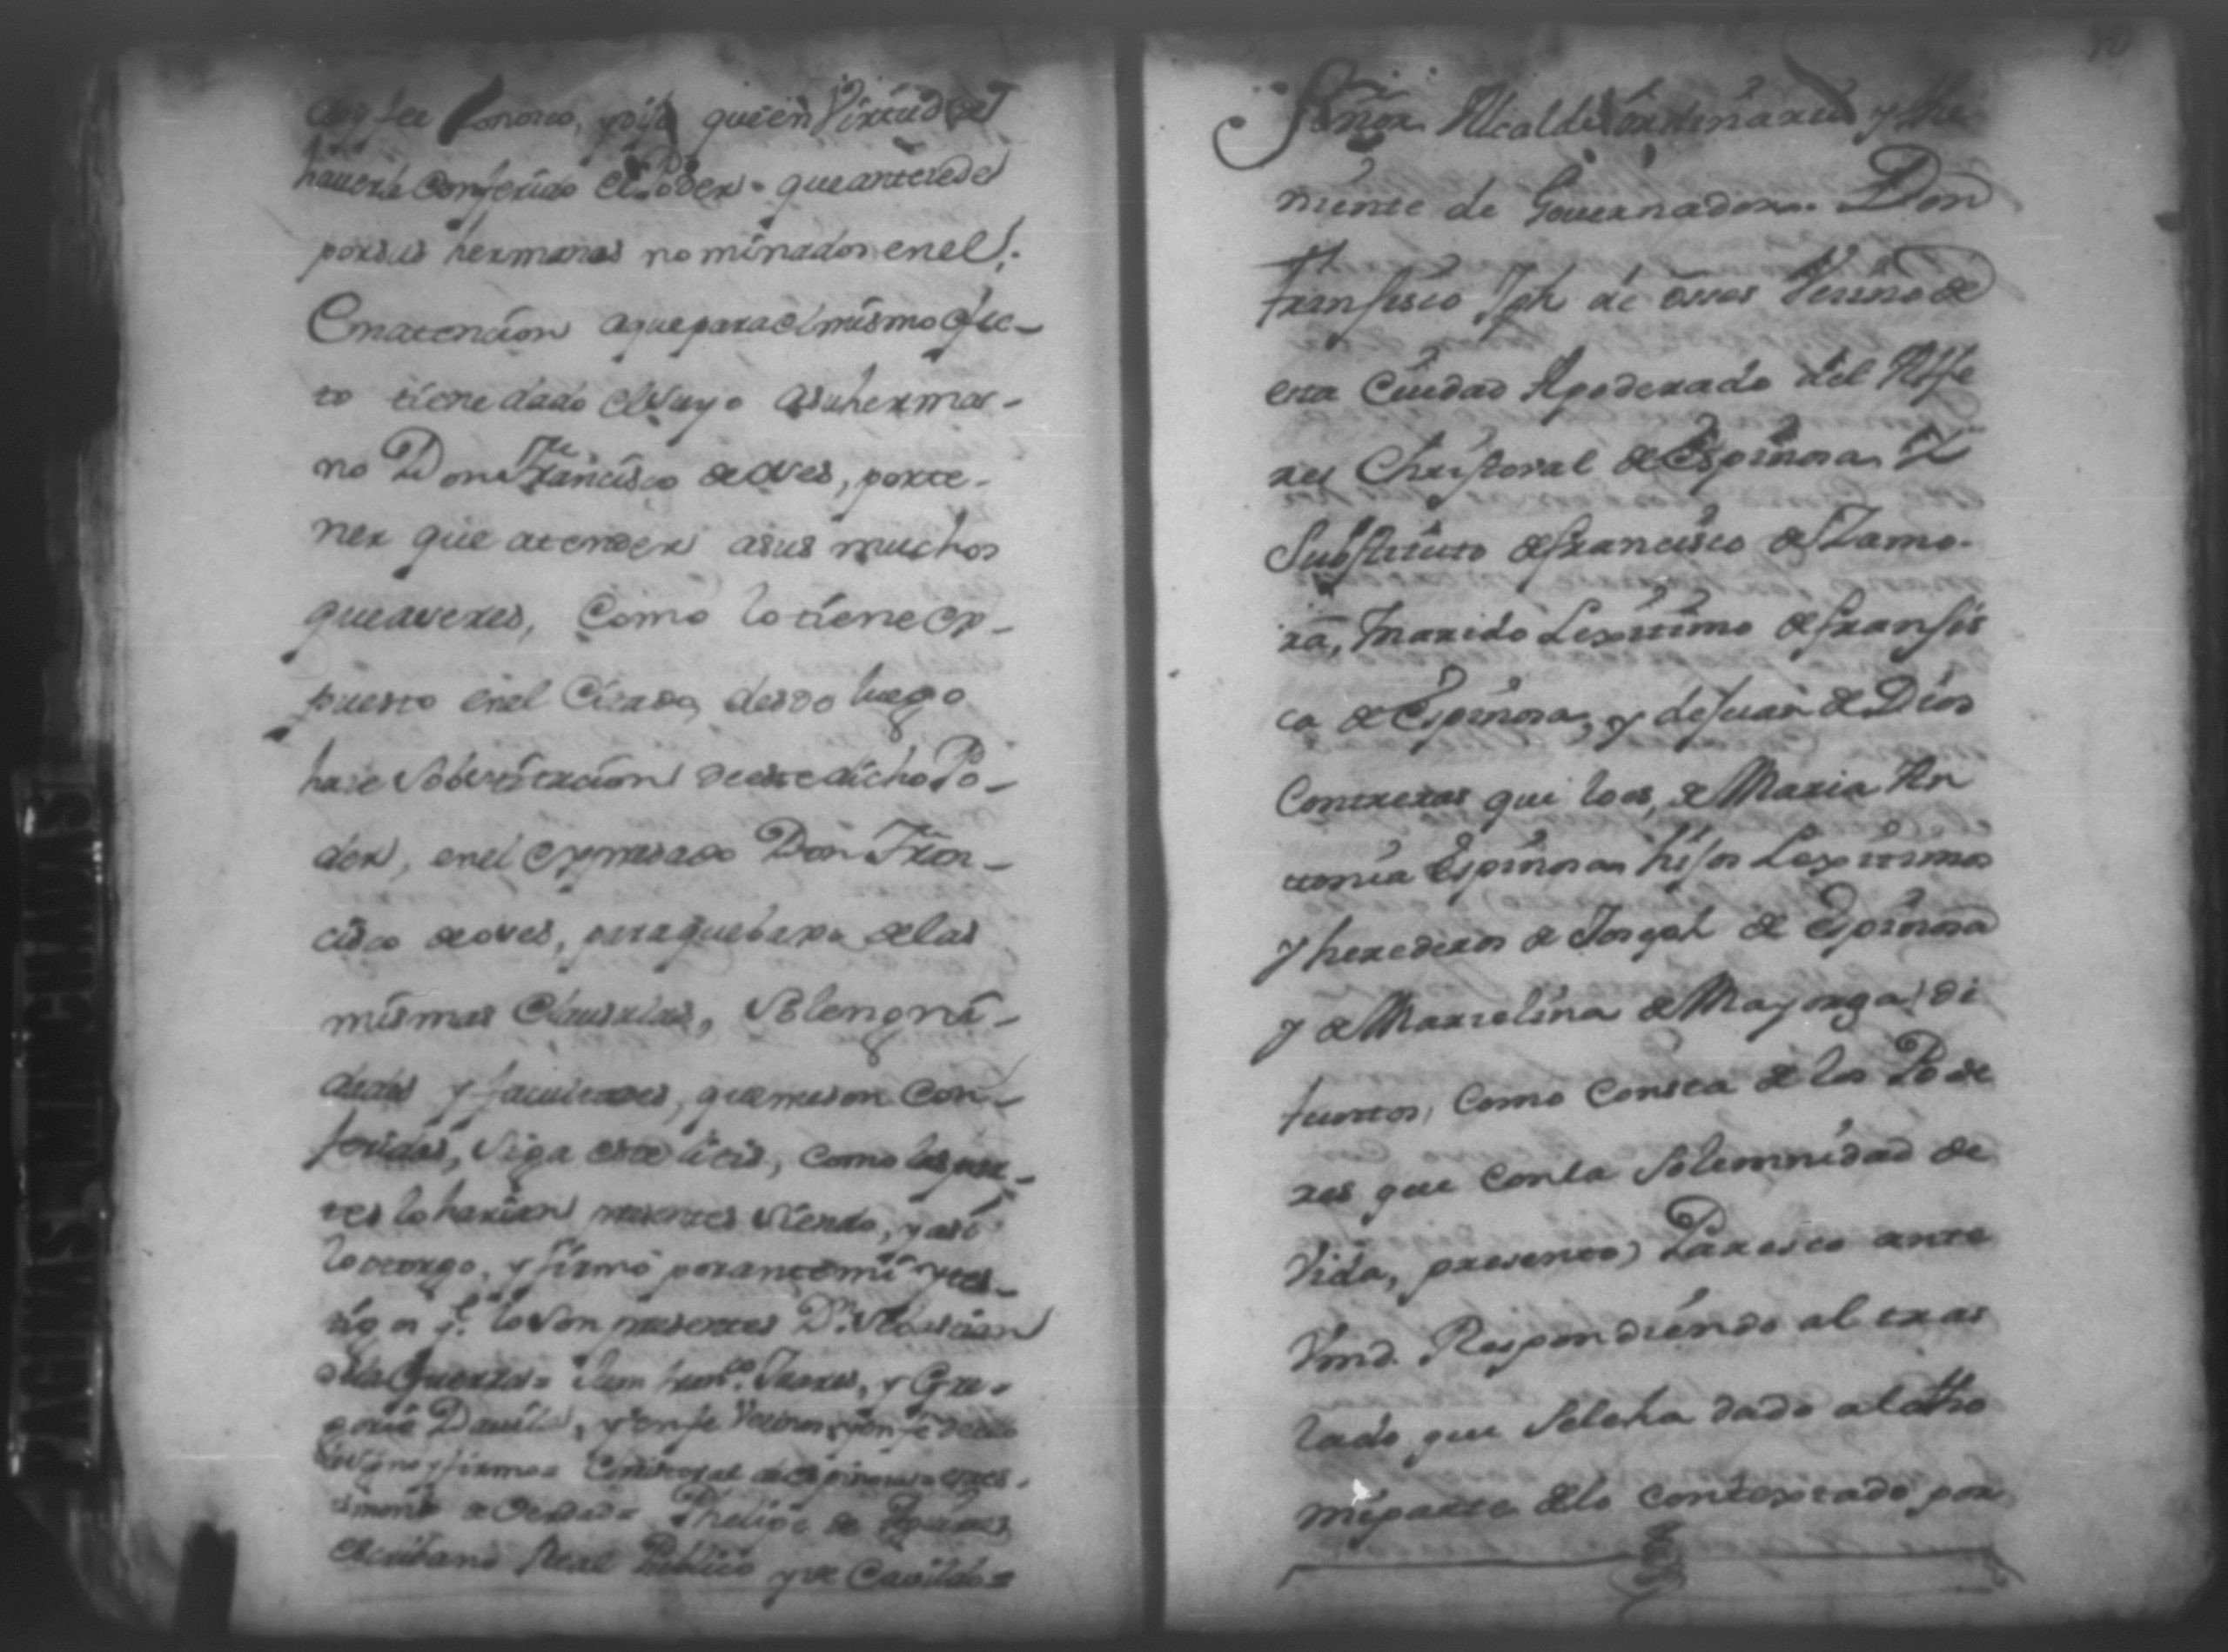 doy fee conosco, y dijo que en Virtud de
hauerle Conferido el Poder que antecede
por sus hermanos nominados en el;
En atencion a que para el mismo efec-
to tiene dado el suyo a su herma-
no Don Francisco de Oses, por te-
ner que atender a sus muchos
queaseres, Como lo tiene ex-
puesto en el Citado, desde luego
hase Sobstitucion de este dicho Po-
der, en el expresado Don Fran-
cisco de oses, para que baxo de las
mismas Clausulas, Solengni-
dades y facultades, que me son Con-
feridas, Siga este litis, como las par-
tes lo harian presentes Siendo, y asi
lo otorgo, y firmó por ante mi y tes-
tigos q.e lo son presentes D.n Sebastian
de la Guerra= Juan Fran.co y Gre-
gorio Dauila,
Christoval de Espinosa= es tes-
timonio de Verdad= Phelipe de
Escribano Real Publico y de Cavildo=
PAGINAS MANCHADAS
10
Señor Alcalde ordinario y the
niente de Governador. Don
Fransisco Jph de osses Vesino de
esta Ciudad Apoderado del Alfe
res Christoval de Espinosa
Substituto de francisco de Zamo-
ra, Marido Lexitimo de fransis
ca de Espinosa, y de Juan de Dios
Contreras que lo es, de Maria An
tonia Espinosa hijos Lexitimos
y herederos de Joseph de Espinosa
y de Marselina de Mayorga di
funtos, Como Consta de los Pode
res que con la Solemnidad de
Vida, presento) Paresco ante
Vmd. Respondiendo al tras
lado que Se le ha dado a la otra
mi parte de lo contextado por